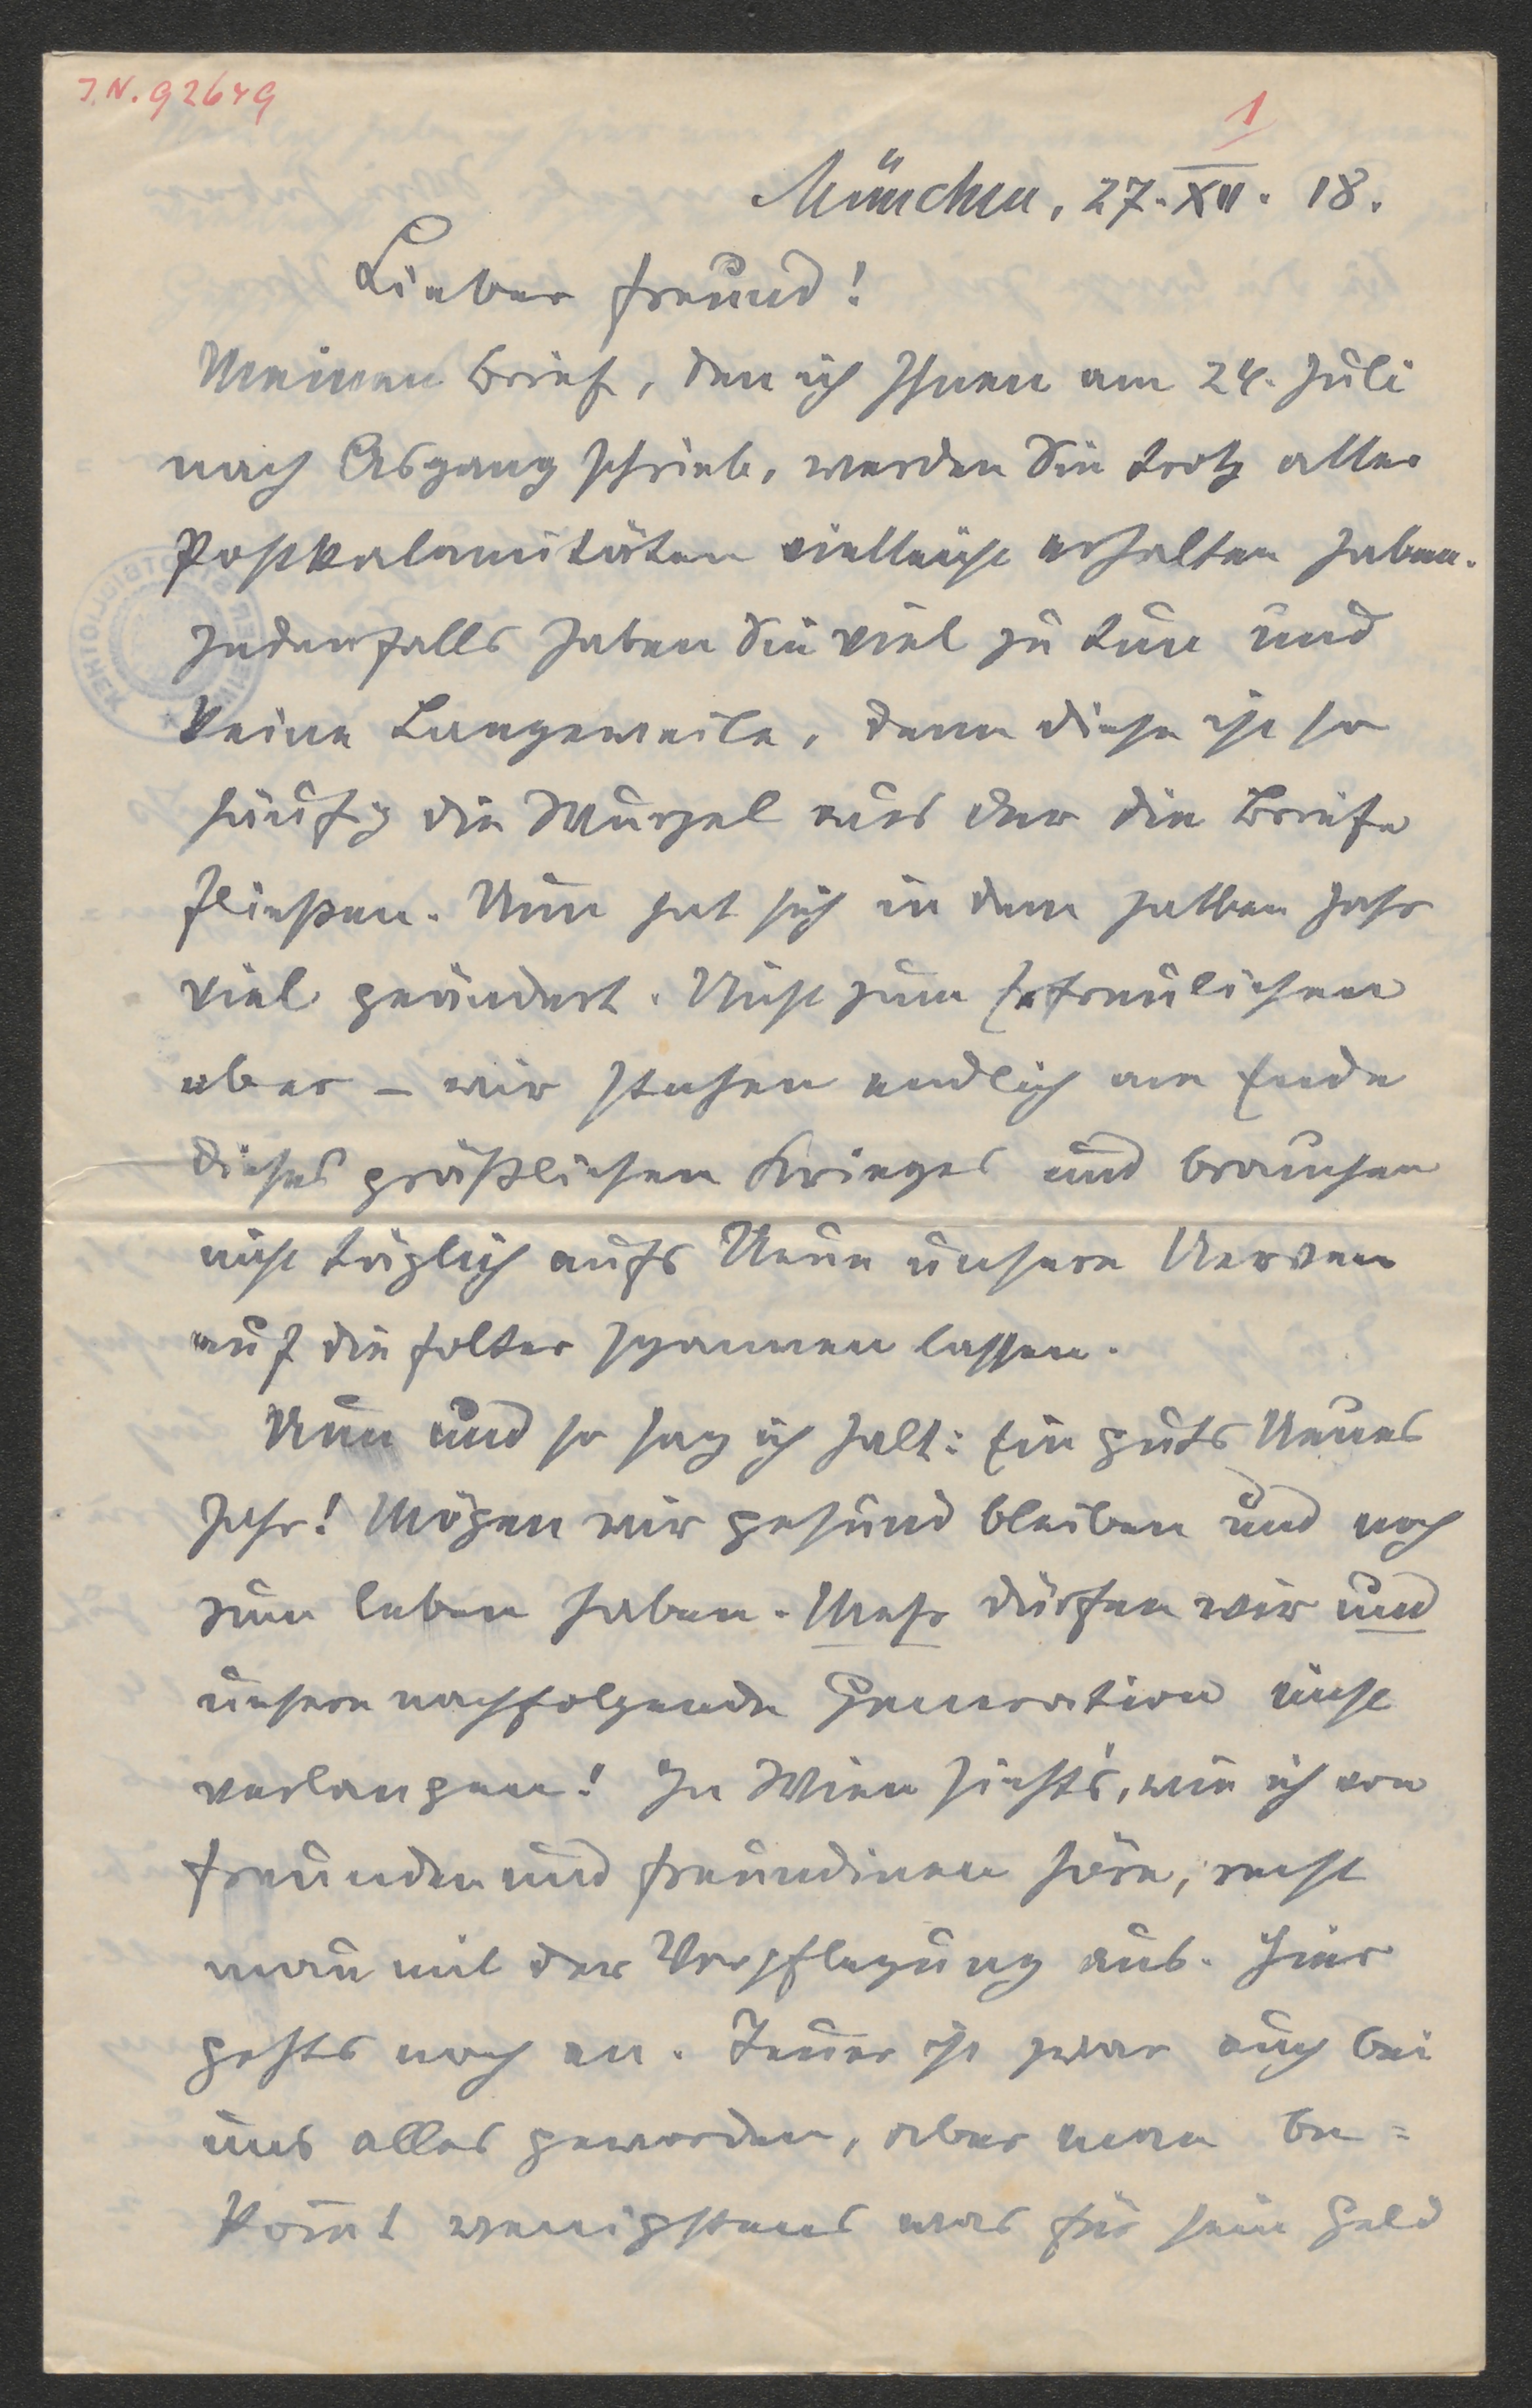 J.N. 92649
1
München, 27. XII. 18.
Lieber Freund!
Meinen Brief, den ich Ihnen am 24. Juli
nach Aspang schrieb, werden Sie trotz aller
Postkalamitäten vielleicht erhalten haben.
Jedenfalls haben Sie viel zu tun und
keine Langeweile, denn diese ist so
häufig die Wurzel aus der die Briefe
fließen. Nun hat sich in dem halben Jahr
viel geändert. Nicht zum Erfreulichen
aber – wir stehen endlich am Ende
dieses gräßlichen Krieges und brauchen
nicht täglich aufs Neue unsere Nerven
auf die Folter spannen lassen.
Nun und so sag ich halt: Ein guts Neues
Jahr! Mögen wir gesund bleiben und noch
zum leben haben. Mehr dürfen wir und
unsere nachfolgende Generation nicht
verlangen! In Wien siehts', wie ich von
Freunden und Freundinen höre, recht
mau mit der Verpflegung aus. Hier
gehts noch an. Teuer ist zwar auch bei
uns alles geworden, aber man be=
kom̄t wenigstens was für sein Geld